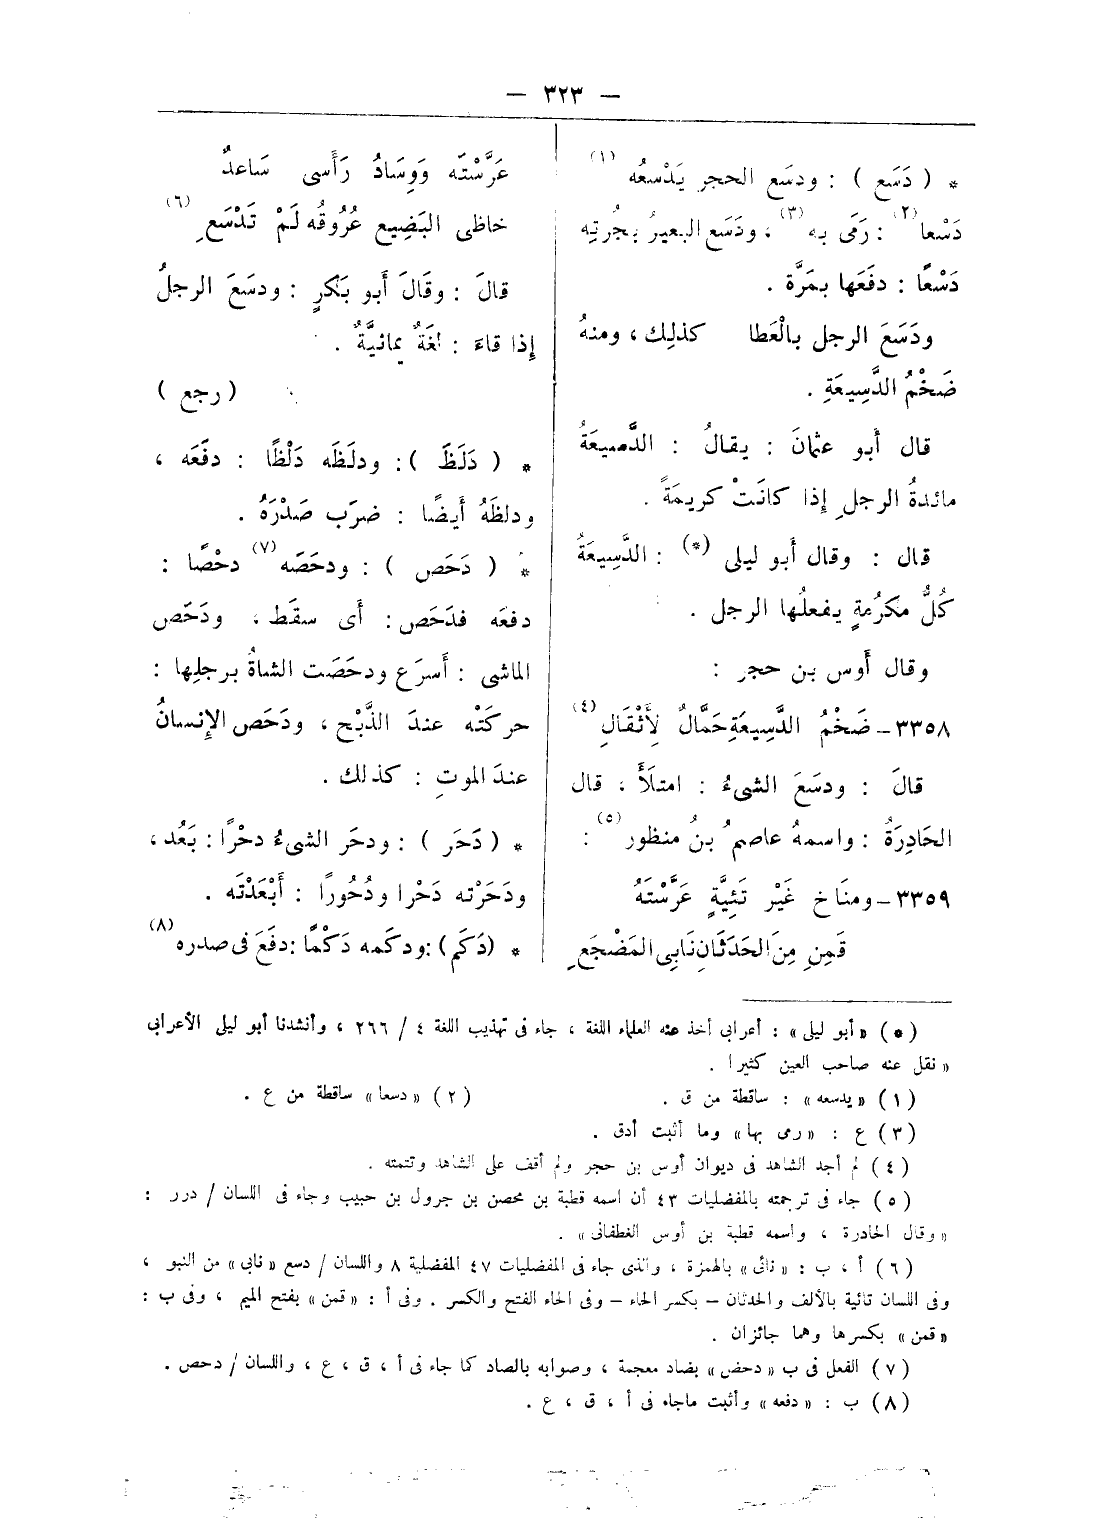 — ٣٢٣ —
* ( دَسَع ) : ودسَع الحجر يَدْسعُه (١)
دَسْعا (٢) : رَمَى به (٣) ، ودَسَع البعيرُ بجُرتِه
دَسْعًا : دفَعَها بمَرَّة .
ودَسَعَ الرجل بالْعَطا كذلِك ، ومنهُ
ضَخْمُ الدَّسِيعَةِ .
قال أَبو عثمانَ : يقالُ : الدَّسيعَةُ
مائدةُ الرجلِ إِذا كانَتْ كريمَةً .
قال : وقال أَبو ليلى (*) : الدَّسِيعَةُ
كُلُّ مكرُمةٍ يفعلُها الرجل .
وقال أَوس بن حجر :
٣٣٥٨ – ضَخْمُ الدَّسِيعَةِ حَمَّالٌ لِأَثْقَالِ (٤)
قالَ : ودسَعَ الشىءُ : امتلَأَ ، قال
الحَادِرَةُ : واسمهُ عاصمُ بنُ منظور (٥) :
٣٣٥٩ – ومنَاخ غَيْر تَئِيَّةٍ عَرَّسْتَهُ
قَمِنٍ مِنَ الحَدَثَانِ نَابِى المَضْجَعِ
عَرَّسْتَه وَوِسَادُ رَأَسى سَاعدٌ
خاظى البَضِيع عُرُوقُه لَمْ تَدْسَعِ (٦)
قالَ : وقَالَ أَبو بَكرٍ : ودسَعَ الرجلُ
إِذا قاءَ : لغَةٌ يمانيَّةٌ .
( رجع )
* ( دَلَظَ ) : ودلَظَه دَلْظًا : دفَعَه ،
ودلظَهُ أَيضًا : ضرَب صَدْرَهُ .
* ( دَحَص ) : ودحَصَه (٧) دحْصًا :
دفعَه فدَحَص : أَى سقَط ، ودَحَص
الماشى : أَسرَع ودحَصَت الشاةُ برجلِها :
حركَتْه عندَ الذَّبْح ، ودَحَص الإِنسانُ
عندَ الموتِ : كذلك .
* ( دَحَر ) : ودحَر الشىءُ دحْرًا : بَعُد ،
ودَحَرْته دَحْرا ودُحُورًا : أَبْعَدْتَه .
* (دَكَم) : ودكَمه دَكْمًا : دفَعَ فى صدره (٨)
(*) «أبو ليلى» : أعرابى أخذ عنه العلماء اللغة ، جاء فى تهذيب اللغة ٤ / ٢٦٦ ، وأنشدنا أبو ليلى الأعرابى
«نقل عنه صاحب العين كثيرا .
(١) «يدسعه» : ساقطة من ق . (٢) «دسعا» ساقطة من ع .
(٣) ع : «رمى بها» وما أثبت أدق .
(٤) لم أجد الشاهد فى ديوان أوس بن حجر ولم أقف على الشاهد وتتمته .
(٥) جاء فى ترجمته بالمفضليات ٤٣ أن اسمه قطبة بن محصن بن جرول بن حبيب وجاء فى اللسان / درر :
«وقال الحادرة ، واسمه قطبة بن أوس الغطفانى» .
(٦) أ ، ب : «نائى» بالهمزة ، والذى جاء فى المفضليات ٤٧ المفضلية ٨ واللسان / دسع «نابى» من النبو ،
وفى اللسان تائية بالألف والحدثان – بكسر الحاء – وفى الحاء الفتح والكسر . وفى أ : «قمن» بفتح الميم ، وفى ب :
«قمن» بكسرها وهما جائزان .
(٧) الفعل فى ب «دحض» بضاد معجمة ، وصوابه بالصاد كما جاء فى أ ، ق ، ع ، واللسان / دحص .
(٨) ب : «دفعه» وأثبت ماجاء فى أ ، ق ، ع .